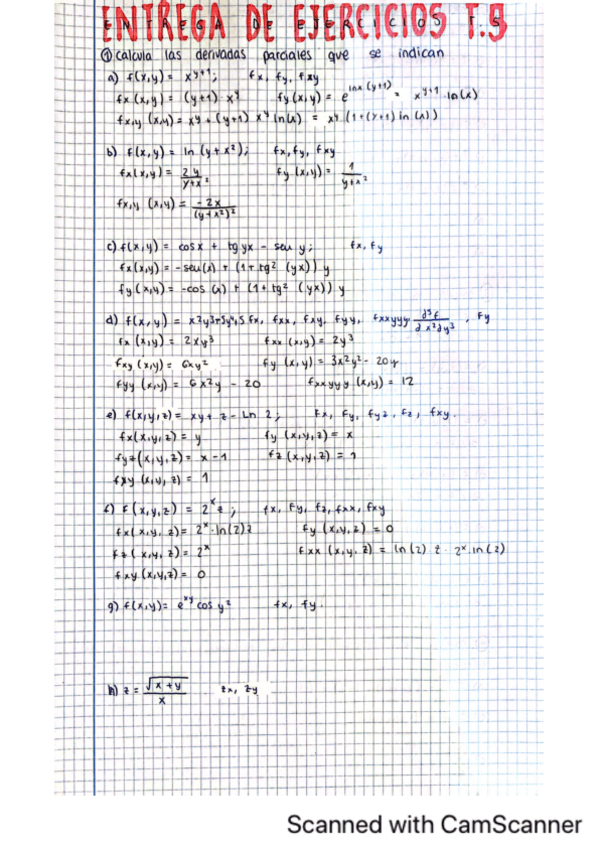 ENTREGA DE EJERCICIOS T.9
① calcula las derivadas parciales que se indican
a) f(x,y) = x^{y+1}; fx, fy, fxy
fx (x,y) = (y+1) · x^y fy (x,y) = e^{lnx (y+1)} = x^{y+1} · ln(x)
fx,y (x,y) = x^y + (y+1) x^y ln(x) = x^y (1+(y+1) ln (x))
b) f(x,y) = ln (y+x²); fx, fy, fxy
fx(x,y) = fy (x,y) = 1/(y+x²)
fx,y (x,y) = -2x/(y+x²)²
c) f(x,y) = cosx + tg yx - seu y; fx, fy
fx(x,y) = -seu(x) + (1+tg² (yx)) y
fy(x,y) = -cos (x) + (1+tg² (yx)) y
d) f(x,y) = fx, fxx, fxy, fyy, fxxyyy ∂⁵f/∂x²∂y³, fy
fx (x,y) = 2xy³ fxx (x,y) = 2y³
fxy (x,y) = 6xy² fy (x,y) = 3x²y² - 20y
fyy (x,y) = 6x²y - 20 fxxyyy (x,y) = 12
e) f(x,y,z) = xy + z - Ln 2; fx, fy, fyz, fz, fxy.
fx(x,y,z) = y fy (x,y,z) = x
fyz(x,y,z) = x-1 fz (x,y,z) = 1
fxy (x,y,z) = 1
f) f(x,y,z) = 2^x z; fx, fy, fz, fxx, fxy
fx(x,y,z) = 2^x · ln(2) z fy (x,y,z) = 0
fz (x,y,z) = 2^x fxx (x,y,z) = ln(2) z · 2^x · ln(2)
fxy (x,y,z) = 0
g) f(x,y) = e^{xy} cos y² fx, fy.
h) z = √(x+y)/x zx, zy
Scanned with CamScanner